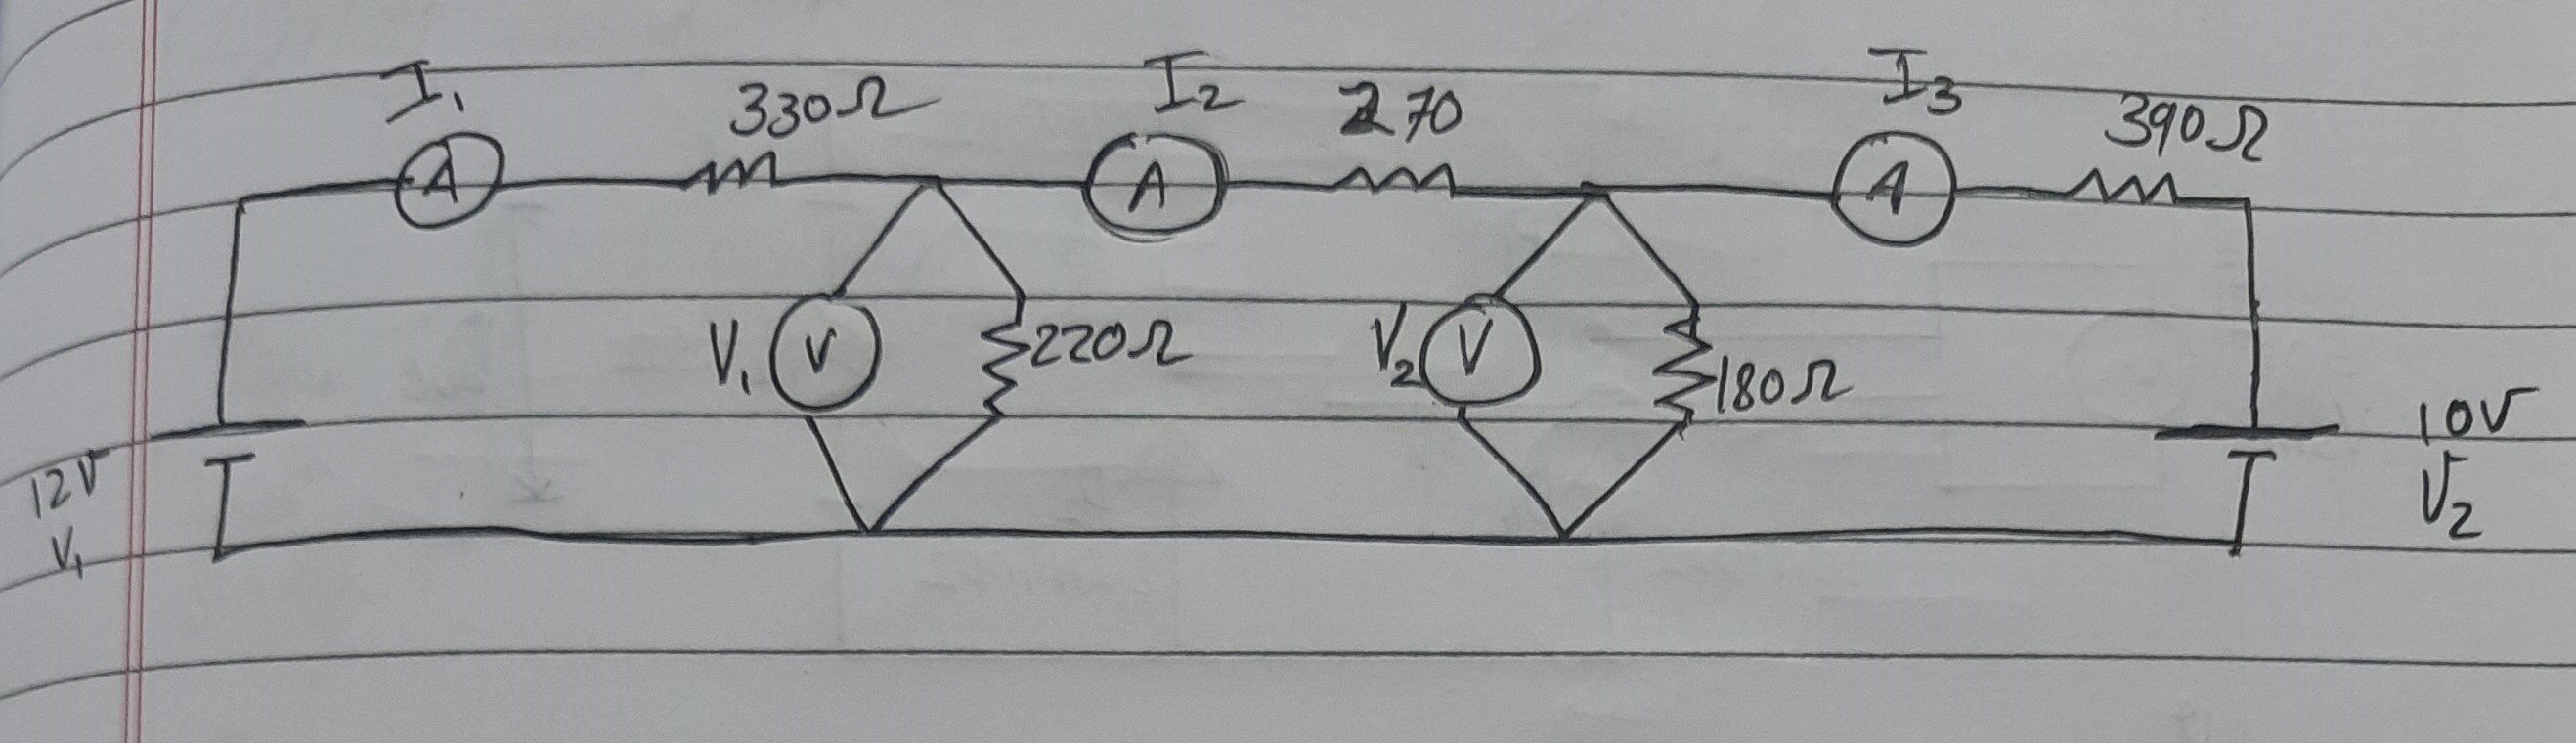 I₁
330Ω
I₂
270
I₃
390Ω
A
A
A
V₁
V
220Ω
V₂
V
180Ω
12V
V₁
10V
V₂